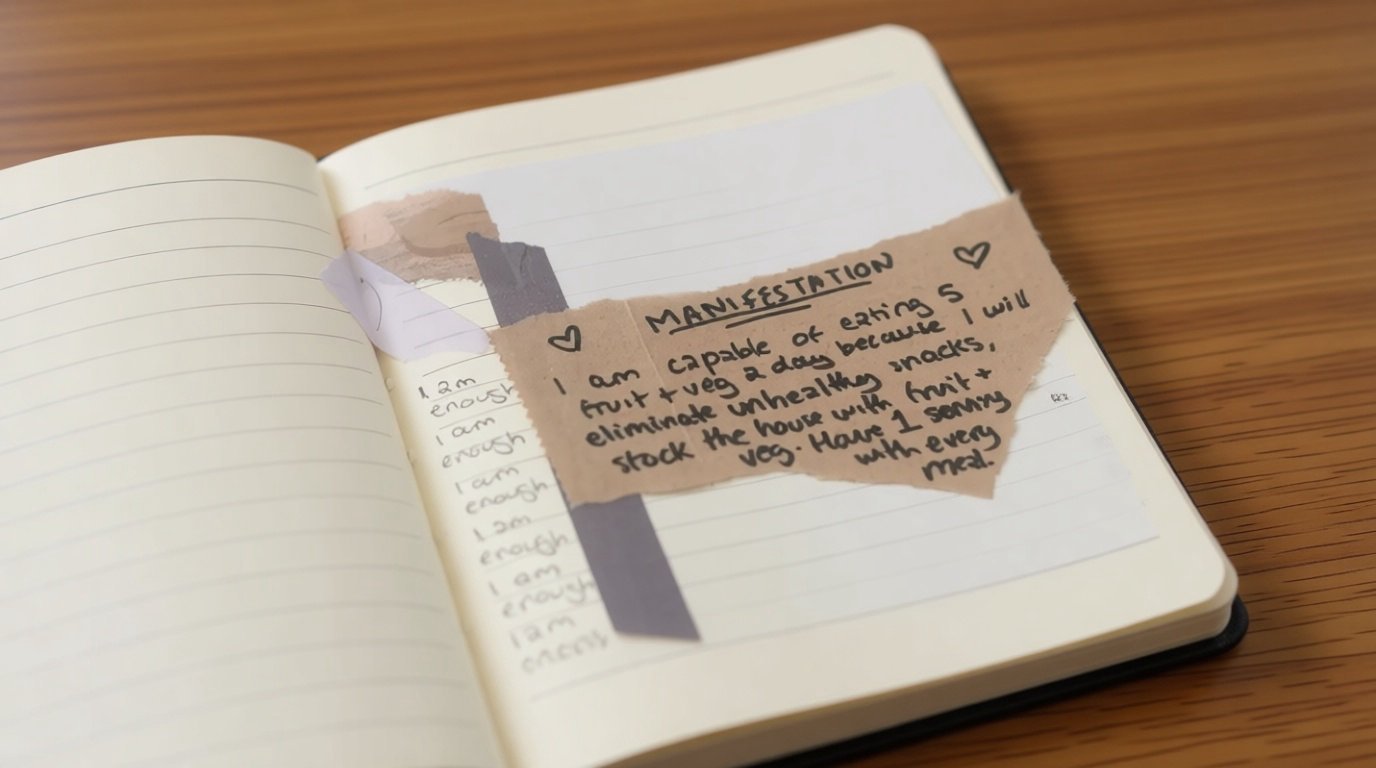 MANIFESTATION
I am capable of eating 5
fruit + veg a day because I will
eliminate unhealthy snacks,
stock the house with fruit +
veg. Have 1 serving
with every
meal.
I am
enough
I am
enough
I am
enough
I am
enough
I am
enough
I am